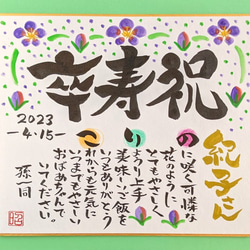 卒寿祝
紀子さん
のに咲く可憐な
花のように、
とてもやさしく
りょうり上手
美味〜ご飯を
いつもありがとう
これからも元気に
いつまでもやさしい
おばあちゃんで
いてください。
孫一同
2023
-4・15-